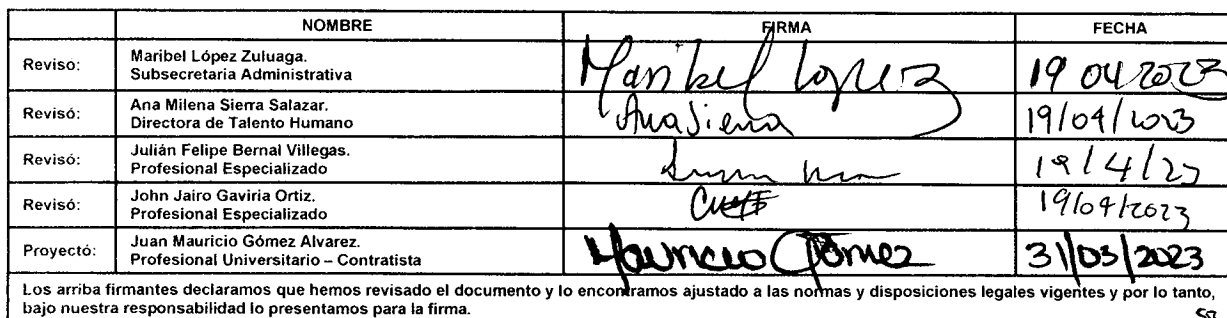 NOMBRE FIRMA FECHA
Reviso: Maribel López Zuluaga.
Subsecretaria Administrativa Maribel Lopez 19 04 2023
Revisó: Ana Milena Sierra Salazar.
Directora de Talento Humano Ana Sierra 19/04/2023
Revisó: Julián Felipe Bernal Villegas.
Profesional Especializado 19/4/23
Revisó: John Jairo Gaviria Ortiz.
Profesional Especializado 19/04/2023
Proyectó: Juan Mauricio Gómez Alvarez.
Profesional Universitario – Contratista Mauricio Gómez 31/03/2023
Los arriba firmantes declaramos que hemos revisado el documento y lo encontramos ajustado a las normas y disposiciones legales vigentes y por lo tanto,
bajo nuestra responsabilidad lo presentamos para la firma.